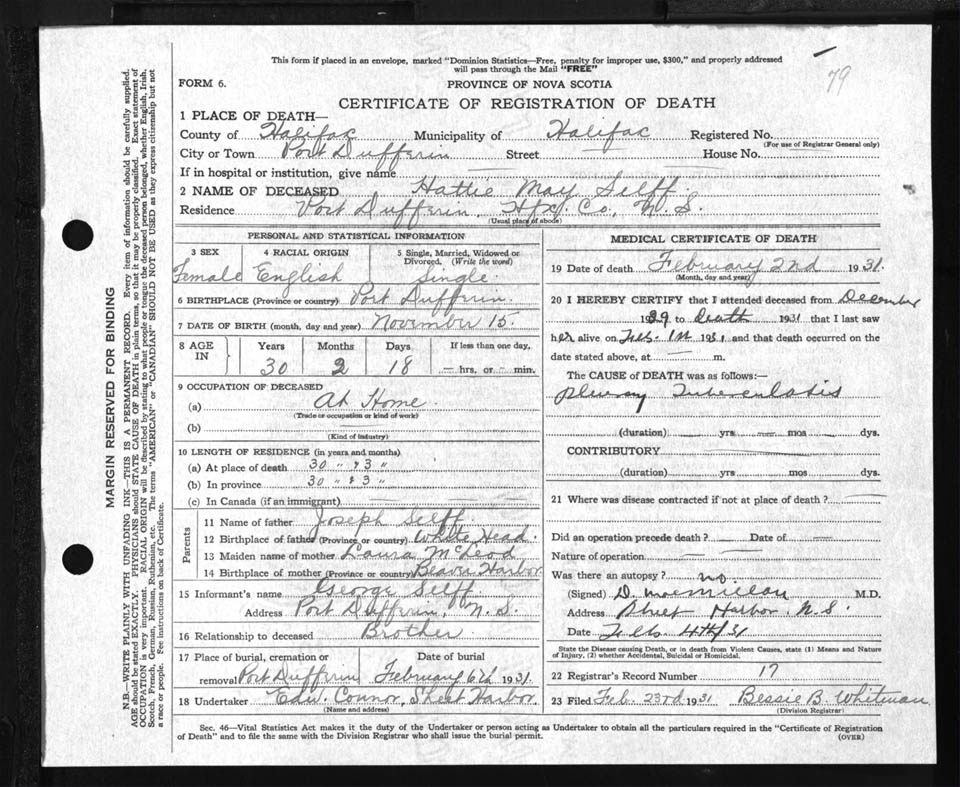 This form if placed in an envelope, marked "Dominion Statistics—Free, penalty for improper use, $300," and properly addressed
will pass through the Mail "FREE"
79
FORM 6.
PROVINCE OF NOVA SCOTIA
CERTIFICATE OF REGISTRATION OF DEATH
1 PLACE OF DEATH—
County of Halifax Municipality of Halifax Registered No.
(For use of Registrar General only)
City or Town Port Dufferin Street — House No. —
If in hospital or institution, give name —
2 NAME OF DECEASED Hattie May Selff.
Residence Port Dufferin, Hfx. Co, N.S.
(Usual place of abode)
PERSONAL AND STATISTICAL INFORMATION
3 SEX
Female
4 RACIAL ORIGIN
English
5 Single, Married, Widowed or
Divorced. (Write the word)
Single.
6 BIRTHPLACE (Province or country) Port Dufferin.
7 DATE OF BIRTH (month, day and year) November 15.
8 AGE
IN
Years Months Days If less than one day,
30 2 18 — hrs, or — min.
9 OCCUPATION OF DECEASED
(a) At Home.
(Trade or occupation or kind of work)
(b)
(Kind of industry)
10 LENGTH OF RESIDENCE (in years and months)
(a) At place of death 30 " & 3 "
(b) In province 30 " & 3 "
(c) In Canada (if an immigrant) —
Parents
11 Name of father Joseph Selff.
12 Birthplace of father (Province or country) White Head.
13 Maiden name of mother Laura McLeod
14 Birthplace of mother (Province or country) Beaver Harbor
15 Informant's name George Selff
Address Port Dufferin, N.S.
16 Relationship to deceased Brother
17 Place of burial, cremation or Date of burial
removal Port Dufferin February 6th 1931.
18 Undertaker Edw. Connor, Sheet Harbor
(Name and address)
MEDICAL CERTIFICATE OF DEATH
19 Date of death February 2nd 1931.
(Month, day and year)
20 I HEREBY CERTIFY that I attended deceased from December
1929 to death 1931 that I last saw
her alive on Feb. 1st 1931 and that death occurred on the
date stated above, at — m.
The CAUSE of DEATH was as follows:—
Pleurisy Tuberculosis
(duration) — yrs — mos — dys.
CONTRIBUTORY
(duration) yrs mos dys.
21 Where was disease contracted if not at place of death? —
Did an operation precede death? — Date of —
Nature of operation —
Was there an autopsy? no.
(Signed) D. MacMillan M.D.
Address Sheet Harbor. N.S.
Date Feb. 4th/31
State the Disease causing Death, or in death from Violent Causes, state (1) Means and Nature
of Injury, (2) whether Accidental, Suicidal or Homicidal.
22 Registrar's Record Number 17
23 Filed Feb. 23rd 1931 Bessie B. Whitman
(Division Registrar)
Sec. 46—Vital Statistics Act makes it the duty of the Undertaker or person acting as Undertaker to obtain all the particulars required in the "Certificate of Registration
of Death" and to file the same with the Division Registrar who shall issue the burial permit.
(OVER)
MARGIN RESERVED FOR BINDING
N.B.—WRITE PLAINLY WITH UNFADING INK—THIS IS A PERMANENT RECORD. Every item of information should be carefully supplied.
AGE should be stated EXACTLY. PHYSICIANS should STATE CAUSE OF DEATH in plain terms, so that it may be properly classified. Exact statement of
OCCUPATION is very important. RACIAL ORIGIN will be described by stating to what people or tongue the deceased person belonged, whether English, Irish,
Scotch, French, German, Russian, Ruthenian, etc. The terms "AMERICAN" or "CANADIAN" SHOULD NOT BE USED as they express citizenship but not
a race or people. See instructions on back of Certificate.